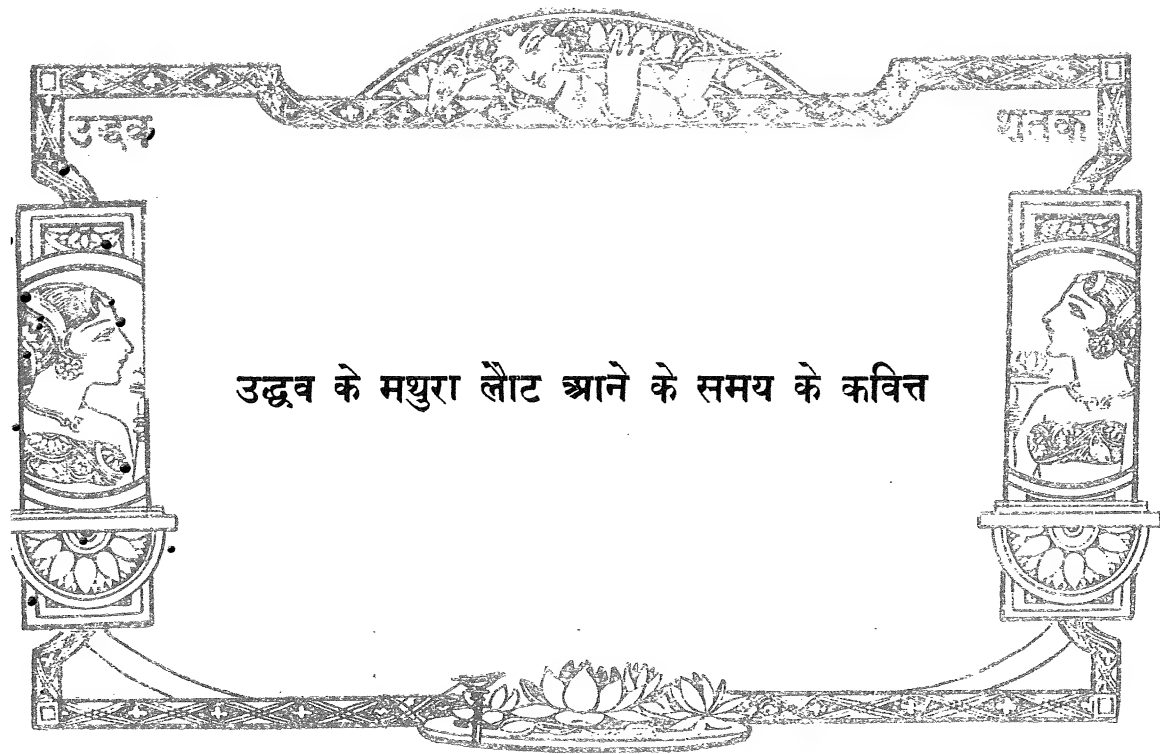 उद्धव
शतक
उद्धव के मथुरा लौट आने के समय के कवित्त